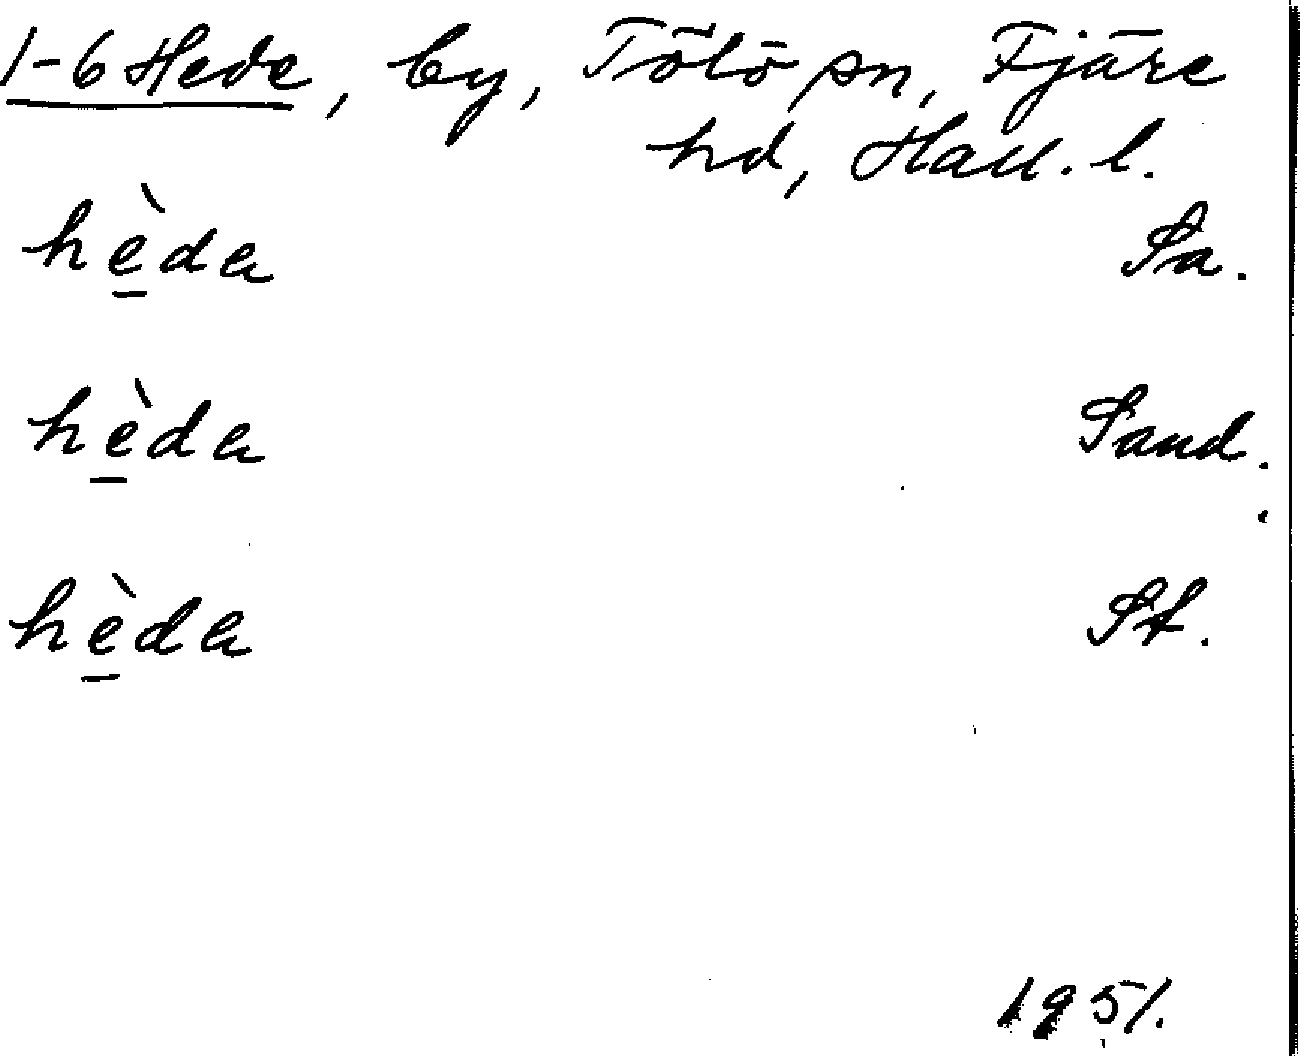 1-6 Hede, by, Tölö sn, Fjäre
hd, Hall. l.
hè̠da Sa.
hè̠da Sand.
hè̠da St.
1951.